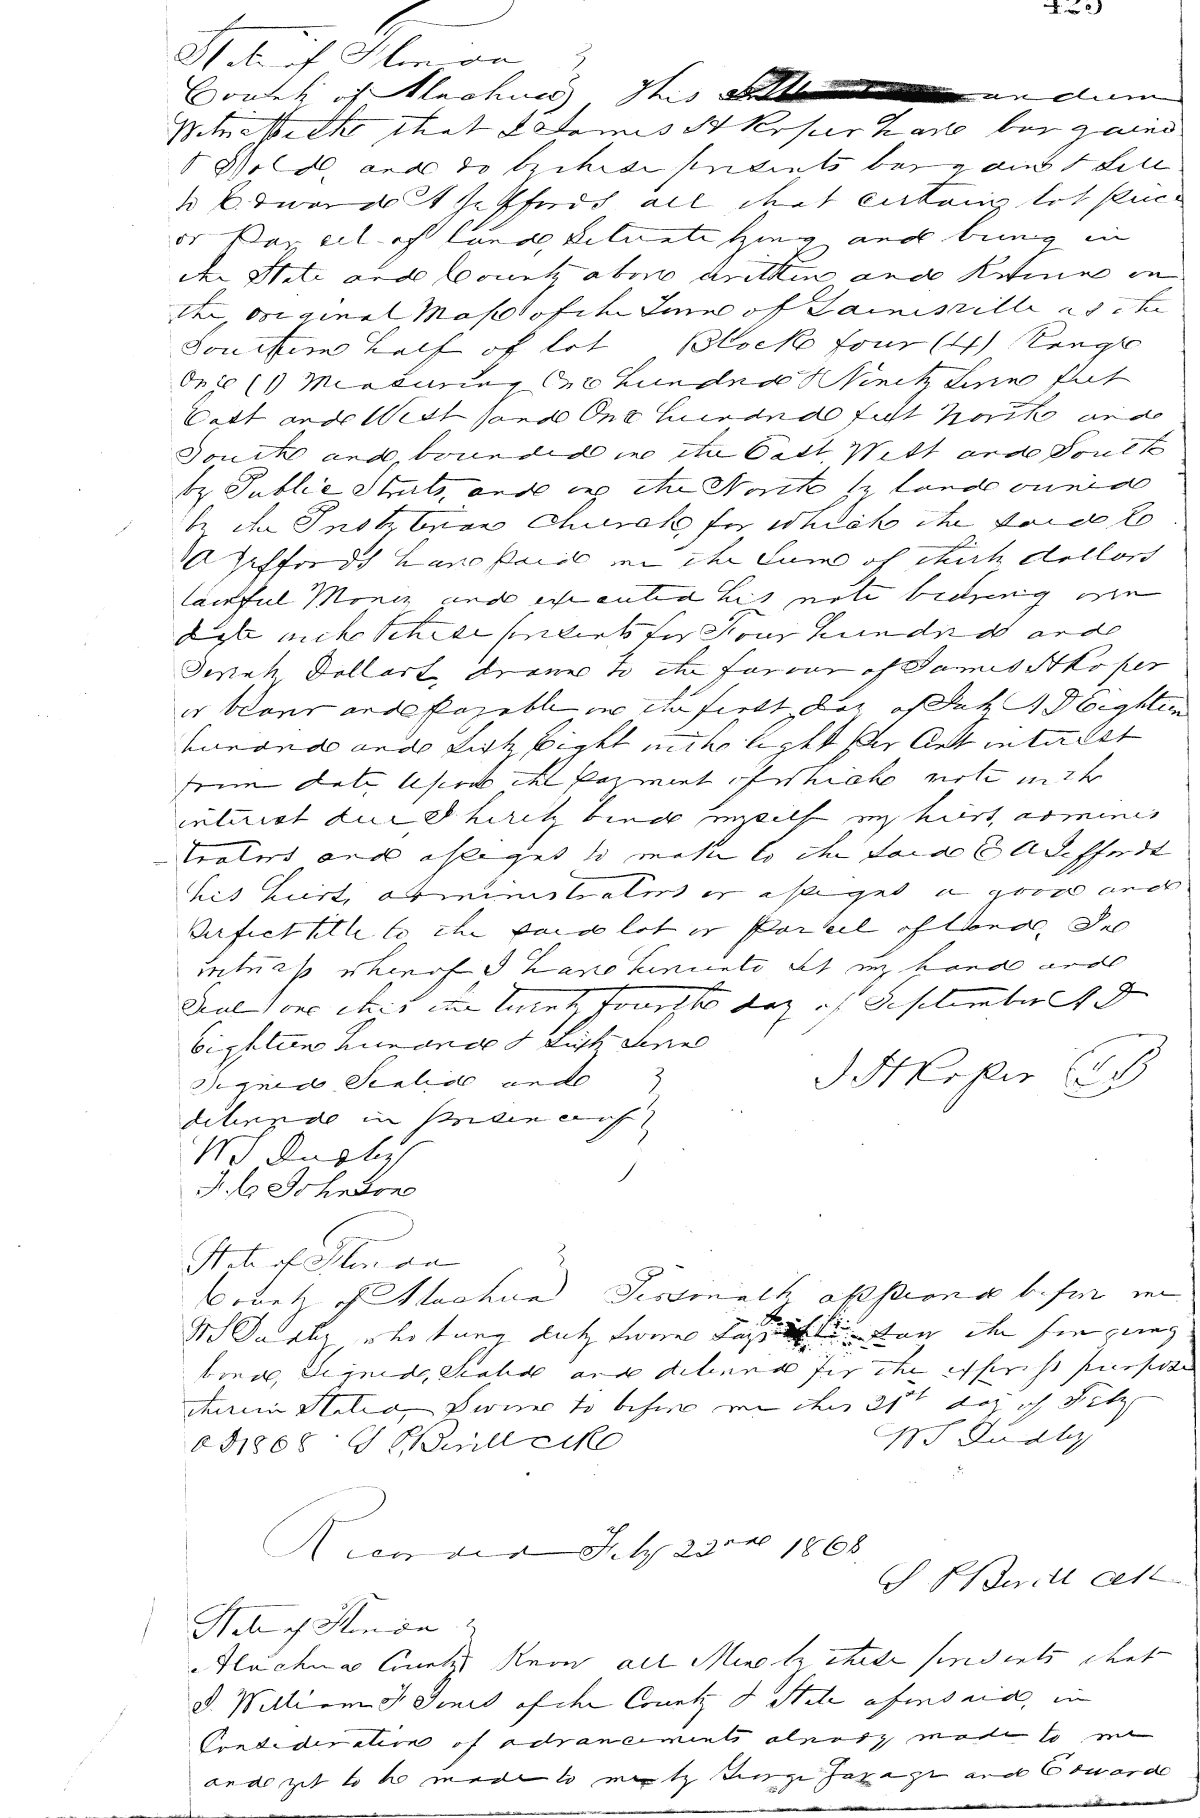 425
State of Florida
County of Alachua } This andum
Witnesseth that I James H Roper have bargained
& Sold, and do by these presents bargain & Sell
to Edward A Jeffords all that certain lot piece
or Parcel of land, Situate lying and being in
the State and County above written and Known on
the original Map of the Town of Gainesville as the
Southern half of lot Block four (4) Range
One (1) Measuring One hundred & Ninety Seven feet
East and West and One hundred feet North and
South and bounded on the East, West and South
by Public Streets, and on the North by land owned
by the Presbyterian Church, for which the said E
A Jeffords have paid me the Sum of thirty dollars
lawful Money and executed his note bearing even
date with these presents for Four hundred and
Seventy Dollars, drawn to the favour of James H Roper
or bearer and payable on the first day of July A D Eighteen
hundred and Sixty Eight with Eight per Cent interest
from date Upon the payment of which note with
interest due, I hereby bind myself my heirs, adminis
trators and assigns to make to the said E A Jeffords
his heirs, administrators or assigns a good and
Perfect title to the said lot or Parcel of land. In
witness whereof I have hereunto set my hand and
Seal on this the twenty fourth day of September A D
Eighteen hundred & Sixty Seven
Signed Sealed and } J H Roper
delivered in presence of }
W S Dudley
J. C Johnson
State of Florida }
County of Alachua } Personally appeared before me
W S Dudley who being duly Sworn Says saw the foregoing
bond, Signed, Sealed and delivered for the express purpose
therein Stated, Sworn to before me this 21st day of Feby
A D 1868 S P Bevill clk W S Dudley
Recorded Feby 22nd 1868
S P Bevill clk
State of Florida }
Alachua County } Know all Men by these presents that
I. William J Jones of the County & State aforesaid, in
Consideration of advancements already made to me
and yet to be made to me by George Savage and Edward